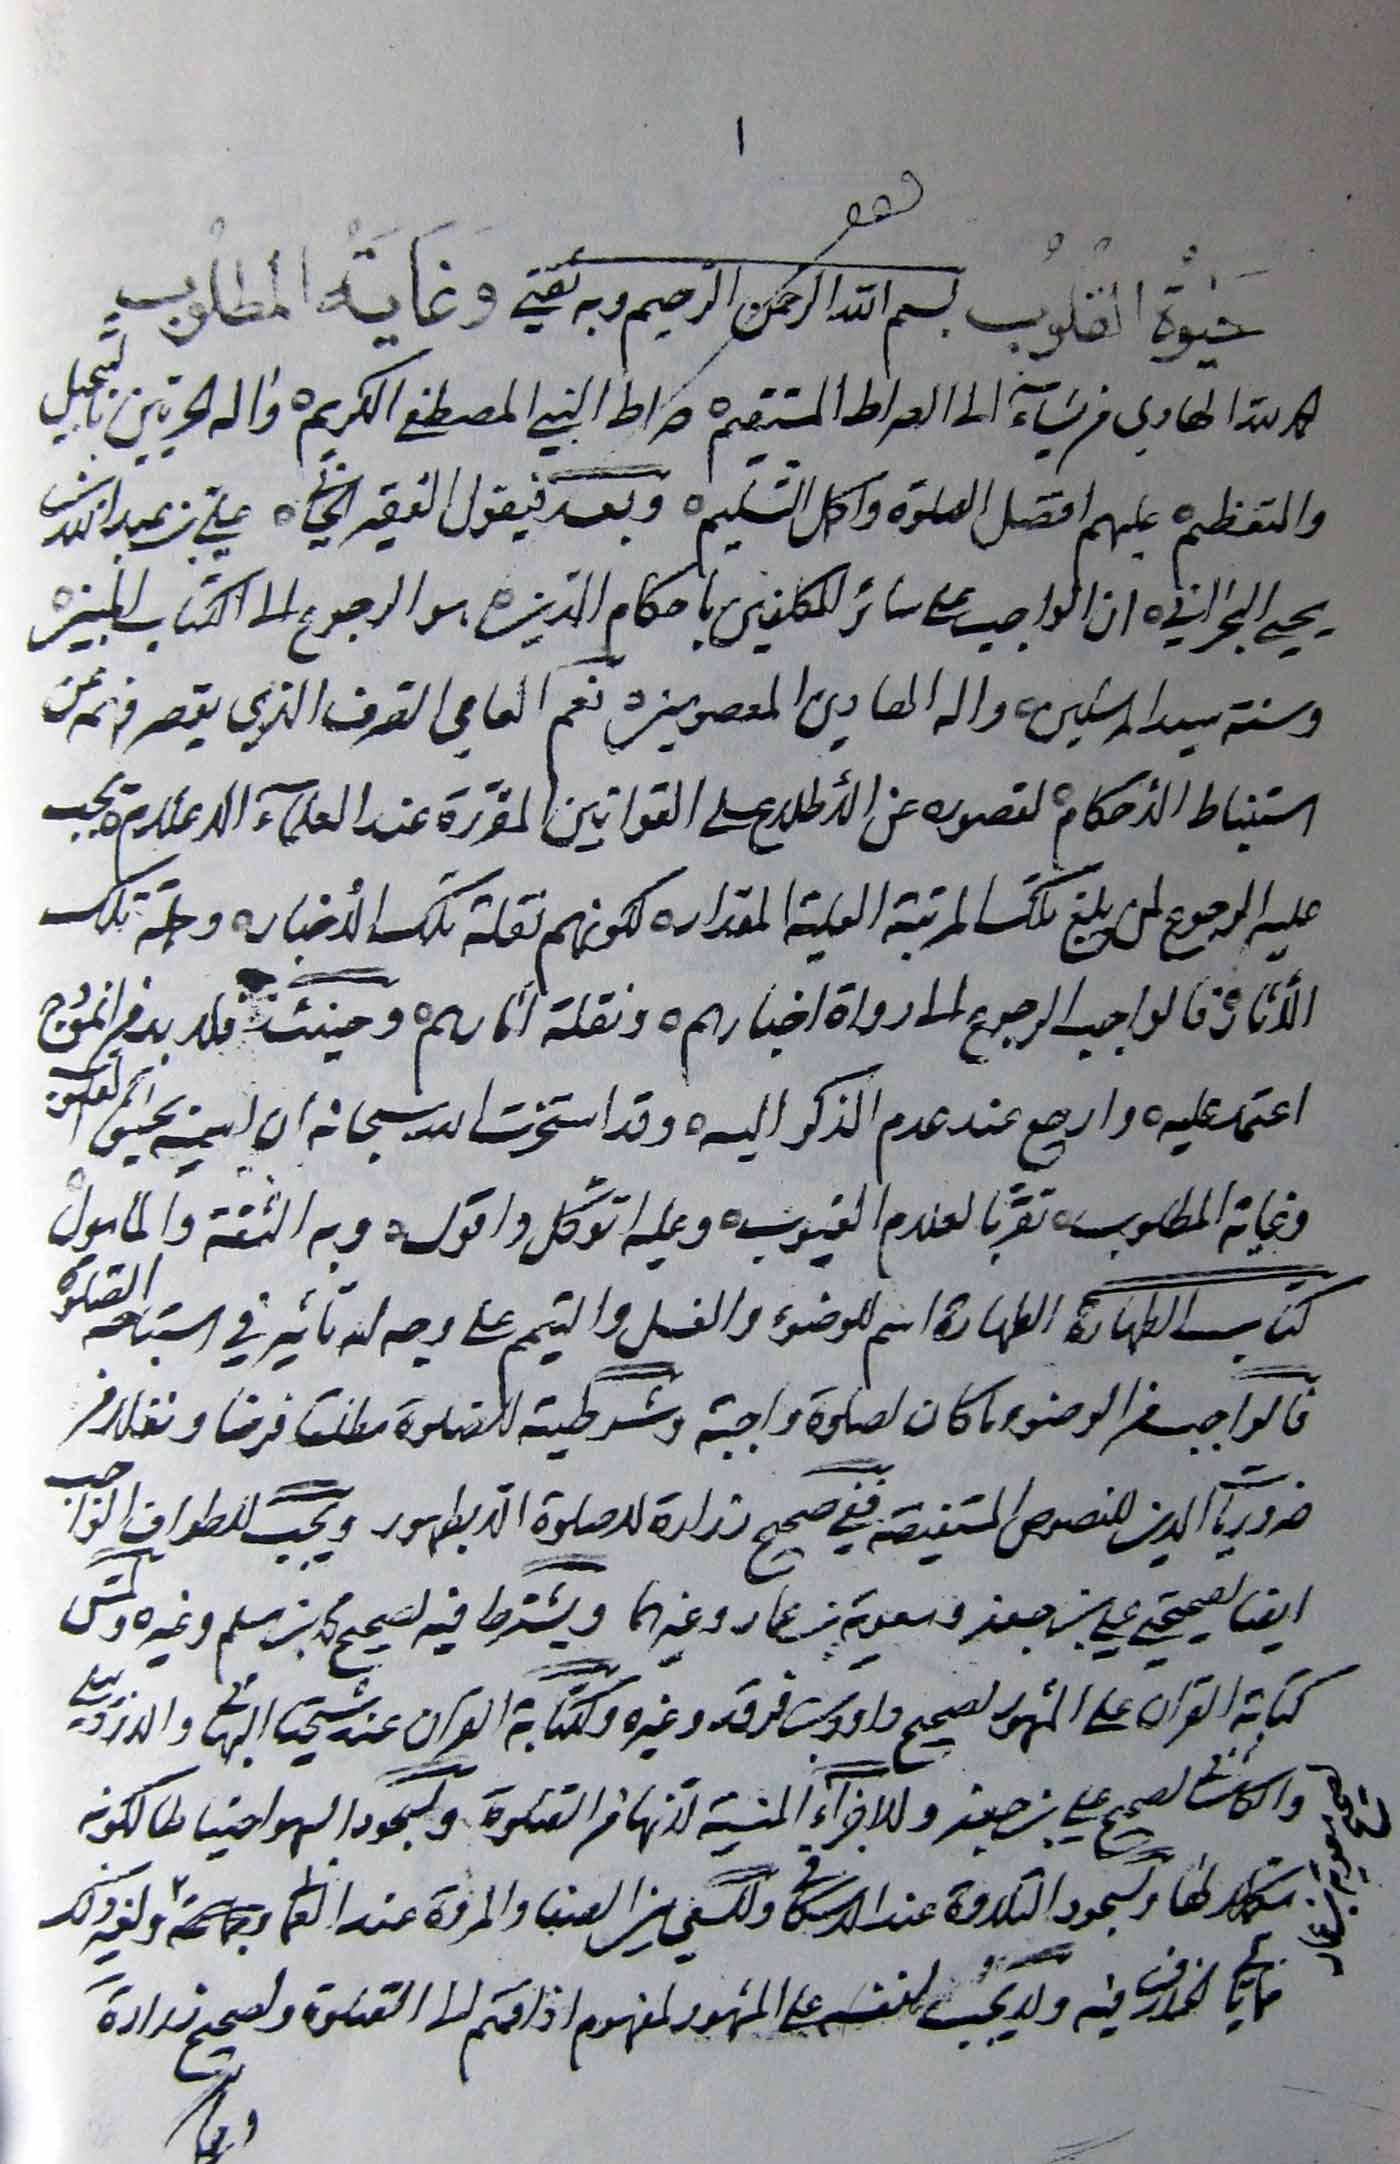 ١
حَيٰوة القلُوب بسم الله الرحمن الرحيم وبه ثقتي وَغَايَة المطلُوب
الحمد لله الهادي من يشآء الى الصراط المستقيم صراط النبي المصطفى الكريم واله الحريين بالتبجيل
والتعظيم عليهم افضل الصلوة واكمل التسليم وبعد فيقول الفقير الجاني علي بن عبد الله بن
يحيى البحراني ان الواجب على سائر المكلفين بأحكام الدين هو الرجوع الى الكتاب المبين
وسنة سيد المرسلين واله الهادين المعصومين نعم العامي الصرف الذي يقصر فهمه عن
استنباط الأحكام لقصوره عن الأطلاع على القوانين المقررة عند العلمآء الاعلام يجب
عليه الرجوع لمن بلغ تلك المرتبة العلية المقدار لكونهم نقلة تلك الأخبار وحملة تلك
الأثار فالواجب الرجوع الى رواة اخبارهم ونقلة اثارهم وحينئذ فلا بد من انموذج
اعتمد عليه وارجع عند عدم الذكر اليه وقد استخرت الله سبحانه ان اسميه بحيوة القلوب
وغاية المطلوب تقربا لعلام الغيوب وعليه اتوكل واقول وبه الثقة والمأمول
كتاب الطهارة الطهارة اسم للوضوء والغسل والتيمم على وجه له تأثير في استباحة الصلوة
فالواجب من الوضوء ما كان لصلوة واجبة وشرطيته للصلوة مطلقا فرضا ونفلا من
ضروريات الدين للنصوص المستفيضة ففي صحيح زرارة لا صلوة الا بطهور ويجب للطواف الواجب
ايضا لصحيحتي علي بن جعفر ومعوية بن عمار وغيرهما ويشترط فيه لصحيح محمد بن مسلم وغيره ولمس
كتابة القران على المشهور لصحيح داود بن فرقد وغيره ولكتابة القران عند شيخنا البهائي والاردبيلي
والكاشاني لصحيح علي بن جعفر وللاجزآء المنسية لأنها من الصلوة ولسجود السهو احتياطا لكونه
مكملا لها ولسجود التلاوة عند الاسكافي وللسعي بين الصفا والمروة عند العماني
لصحيحة معوية بن عمار
فيه ولا يجب لنفسه على المشهور لمفهوم اذا قمتم الى الصلوة ولصحيح زرارة